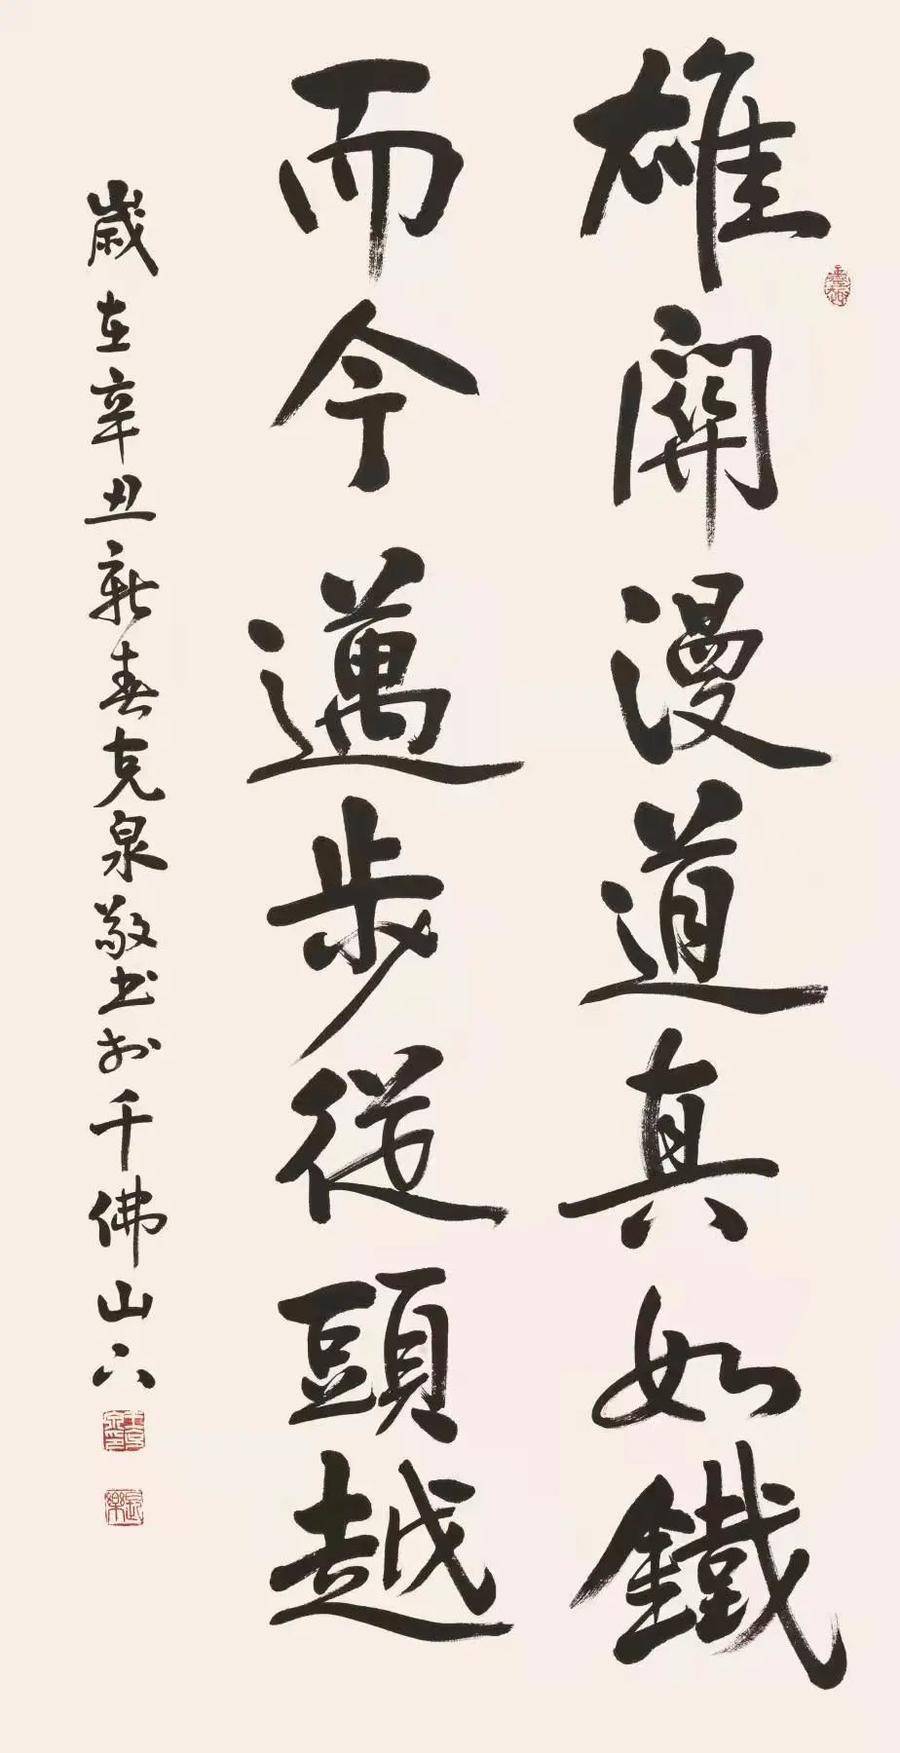 雄關漫道真如鐵
而今邁步從頭越
歲在辛丑新春克泉敬书於千佛山下